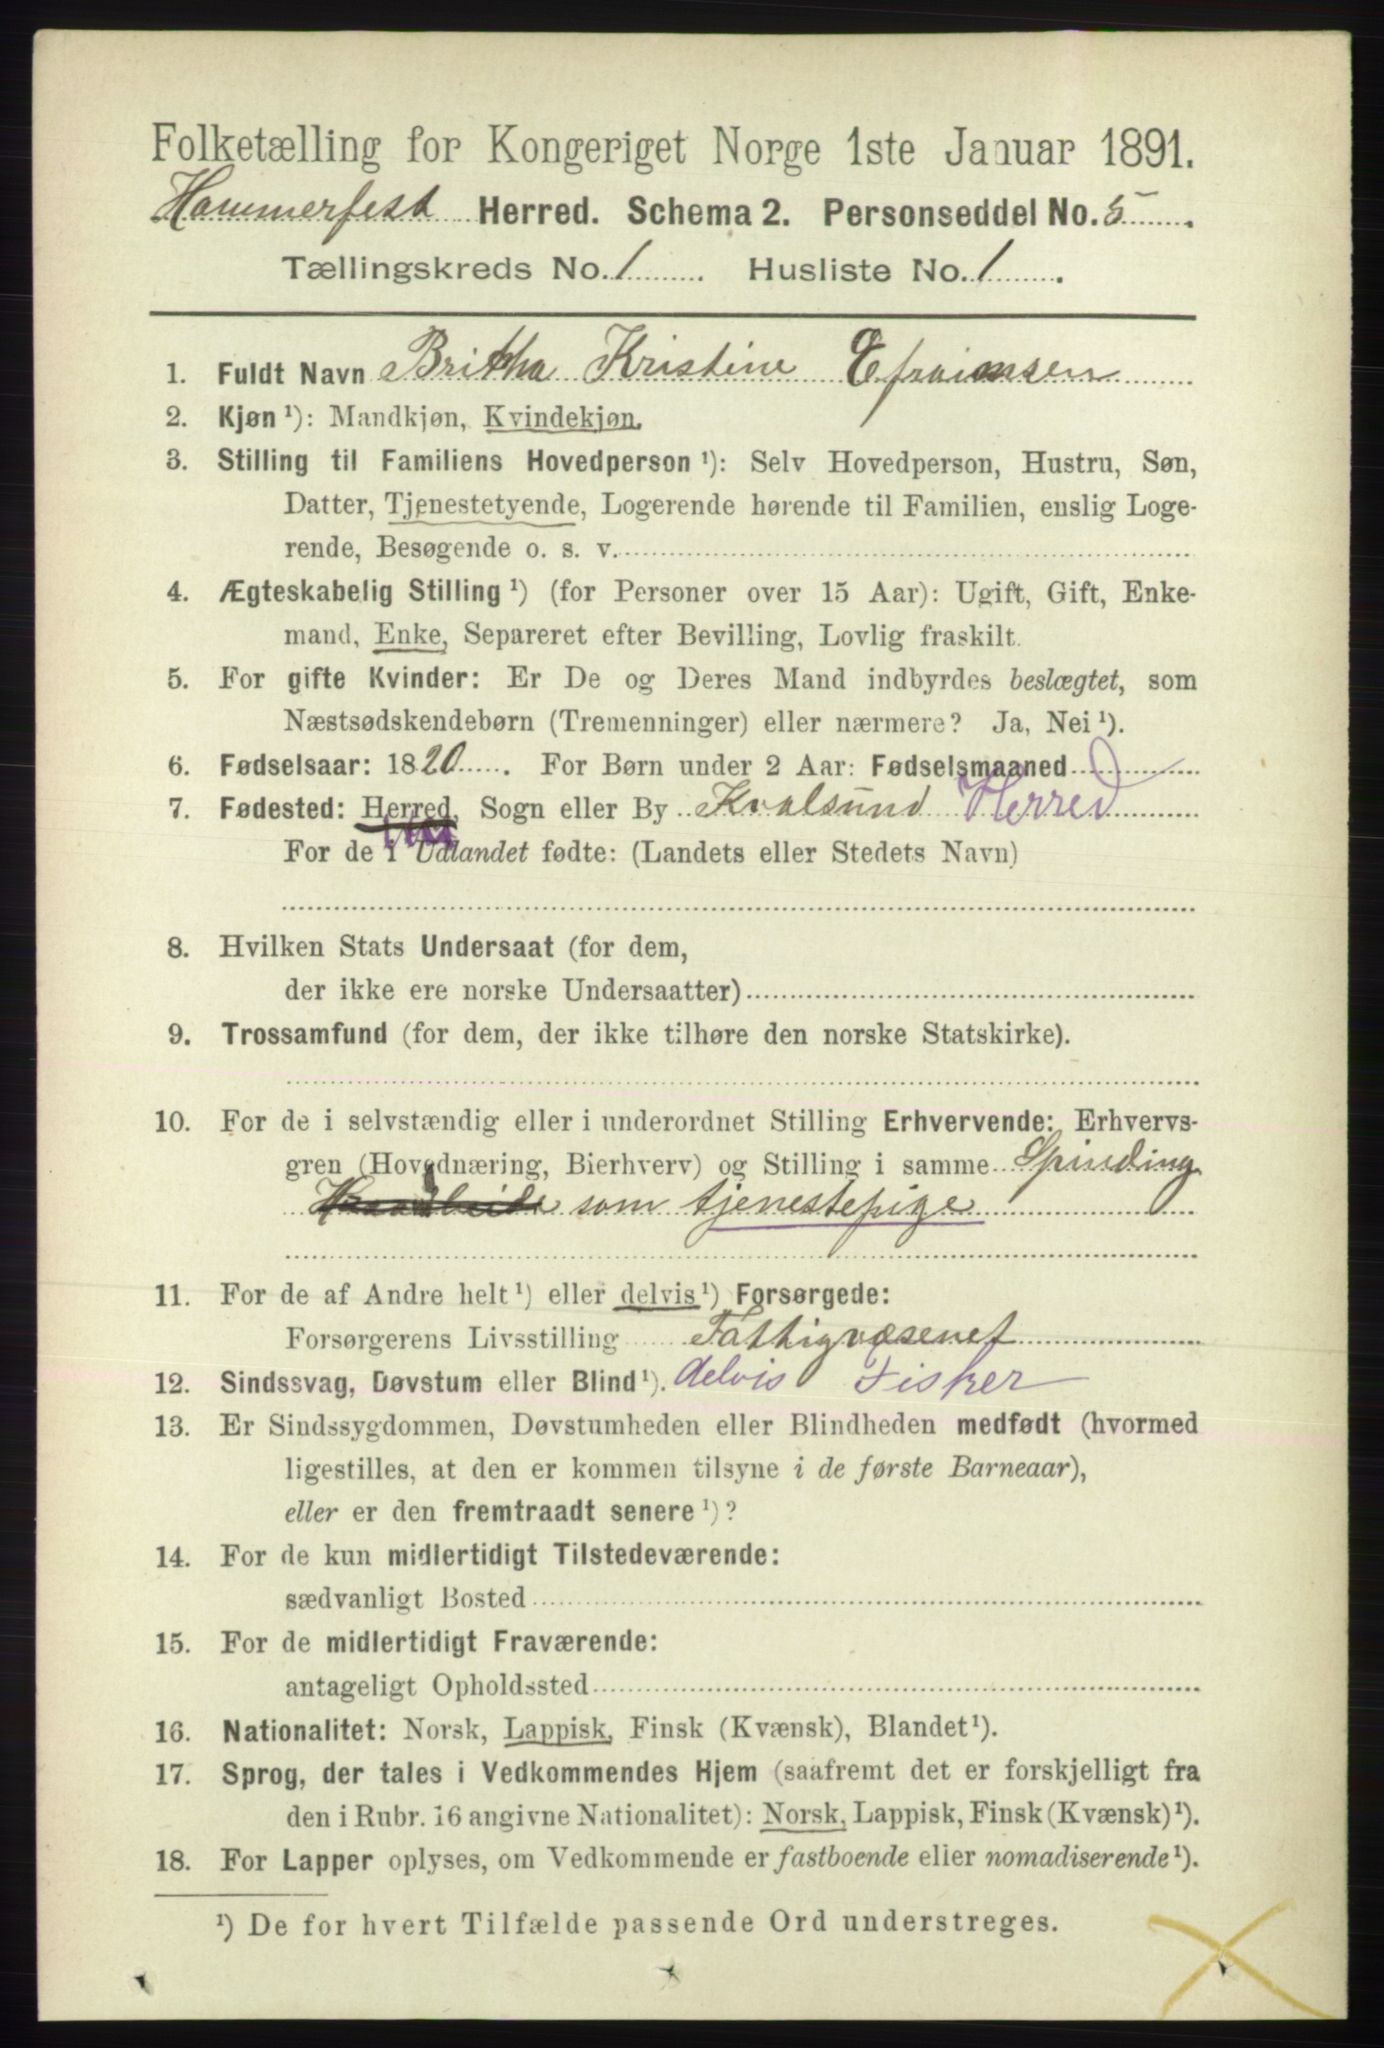 Folketælling for Kongeriget Norge 1ste Januar 1891.
Hammerfest Herred. Schema 2. Personseddel No. 5
Tællingskreds No. 1 Husliste No. 1
1. Fuldt Navn Britha Kristine Efraimsen
2. Kjøn ¹): Mandkjøn, Kvindekjøn.
3. Stilling til Familiens Hovedperson ¹): Selv Hovedperson, Hustru, Søn,
Datter, Tjenestetyende, Logerende hørende til Familien, enslig Loge-
rende, Besøgende o. s. v.
4. Ægteskabelig Stilling ¹) (for Personer over 15 Aar): Ugift, Gift, Enke-
mand, Enke, Separeret efter Bevilling, Lovlig fraskilt.
5. For gifte Kvinder: Er De og Deres Mand indbyrdes beslægtet, som
Næstsødskendebørn (Tremenninger) eller nærmere? Ja, Nei ¹).
6. Fødselsaar: 1820. For Børn under 2 Aar: Fødselsmaaned
7. Fødested: Herred, Sogn eller By Kvalsund Herred
For de i Udlandet fødte: (Landets eller Stedets Navn)
8. Hvilken Stats Undersaat (for dem,
der ikke ere norske Undersaatter)
9. Trossamfund (for dem, der ikke tilhøre den norske Statskirke).
10. For de i selvstændig eller i underordnet Stilling Erhvervende: Erhvervs-
gren (Hovednæring, Bierhverv) og Stilling i samme Spinding
som tjenestepige
11. For de af Andre helt ¹) eller delvis ¹) Forsørgede:
Forsørgerens Livsstilling Fattigvæsenet
12. Sindssvag, Døvstum eller Blind ¹). delvis Fisker
13. Er Sindssygdommen, Døvstumheden eller Blindheden medfødt (hvormed
ligestilles, at den er kommen tilsyne i de første Barneaar),
eller er den fremtraadt senere ¹)?
14. For de kun midlertidigt Tilstedeværende:
sædvanligt Bosted
15. For de midlertidigt Fraværende:
antageligt Opholdssted
16. Nationalitet: Norsk, Lappisk, Finsk (Kvænsk), Blandet ¹).
17. Sprog, der tales i Vedkommendes Hjem (saafremt det er forskjelligt fra
den i Rubr. 16 angivne Nationalitet): Norsk, Lappisk, Finsk (Kvænsk) ¹).
18. For Lapper oplyses, om Vedkommende er fastboende eller nomadiserende ¹).
¹) De for hvert Tilfælde passende Ord understreges.